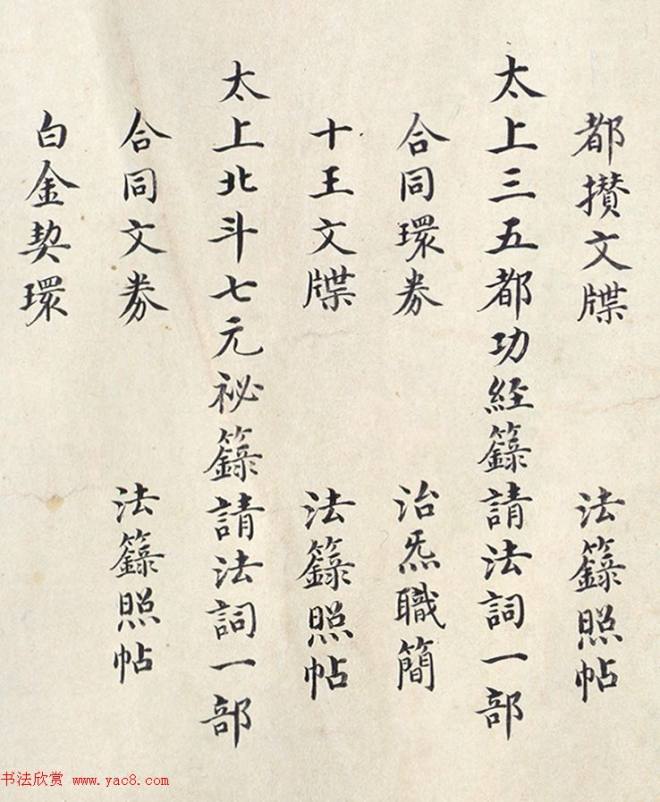 都攅文牒 法籙照帖
太上三五都功經籙請法詞一部
合同環券 治炁職簡
十王文牒 法籙照帖
太上北斗七元祕籙請法詞一部
合同文券 法籙照帖
白金契環
书法欣赏 www.yac8.com